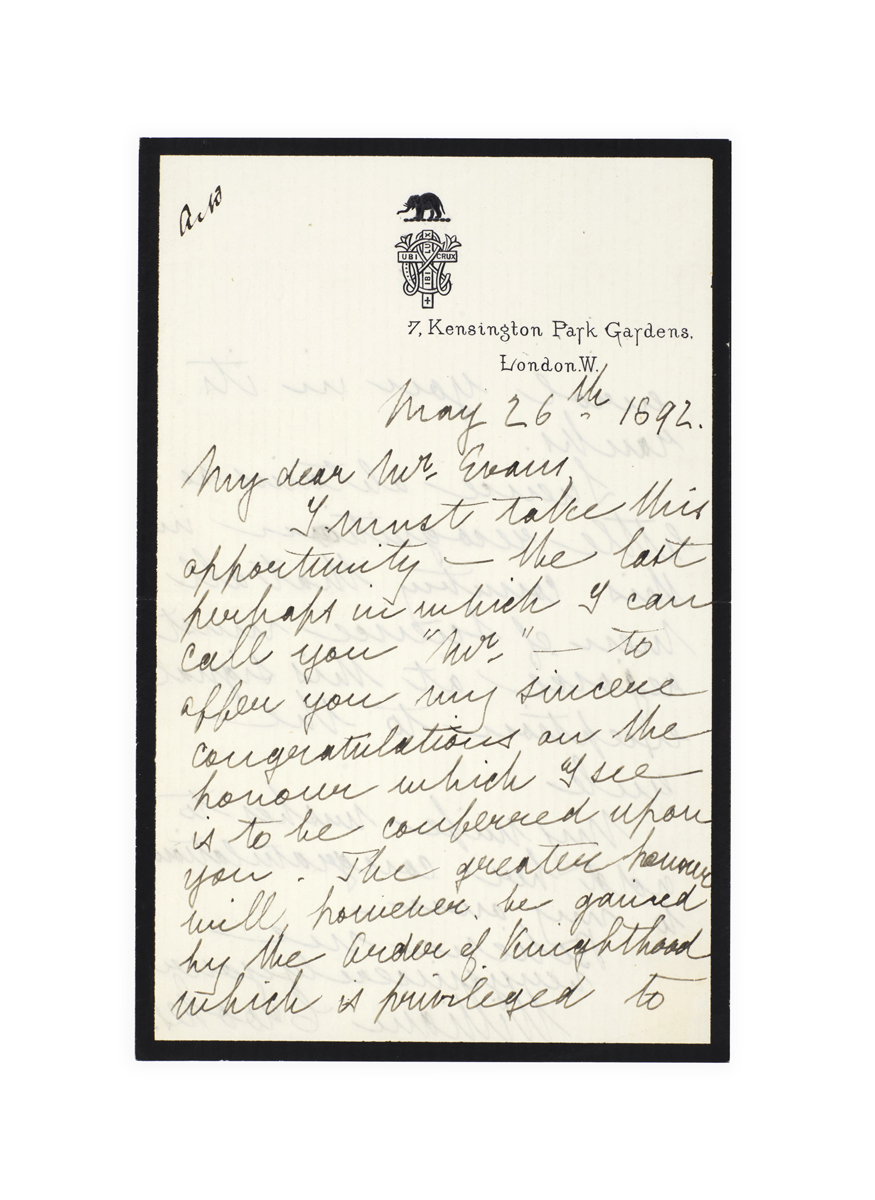 UBI CRUX
IBI LUX
7, Kensington Park Gardens.
London.W.
May 26th 1892.
My dear Mr. Evans
I must take this
opportunity — the last
perhaps in which I can
call you "Mr." — to
offer you my sincere
congratulations on the
honour which I see
is to be conferred upon
you. The greater honour
will, however, be gained
by the Order of Knighthood
which is privileged to